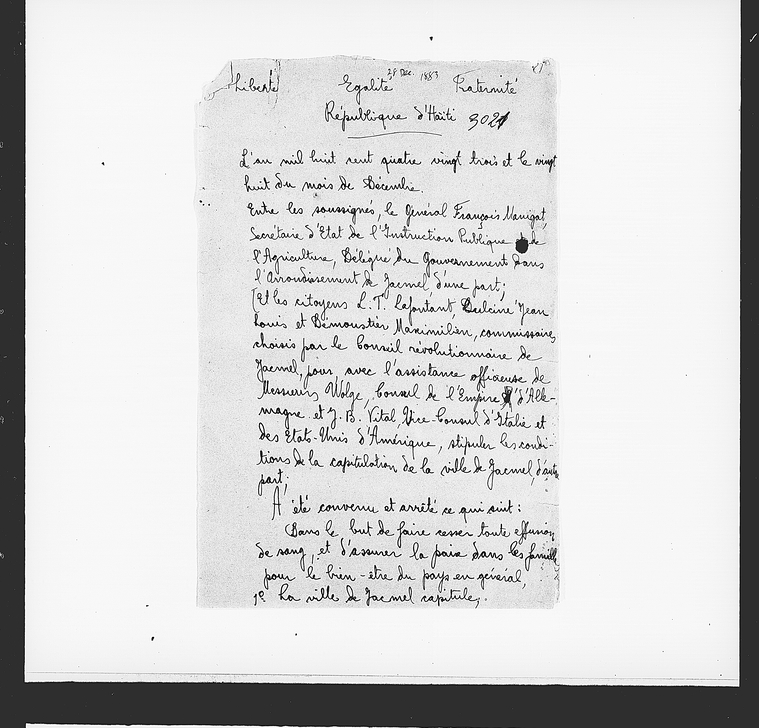 28 Dec. 1883
Liberté Egalité Fraternité
République d'Haïti 302
L'an mil huit cent quatre vingt trois et le vingt
huit du mois de Décembre.
Entre les soussignés, le Général François Manigat,
Secrétaire d'Etat de l'Instruction Publique et de
l'Agriculture, Délégué du Gouvernement dans
l'Arrondissement de Jacmel, d'une part;
Et les citoyens L. T. Lafontant, Dulciné Jean
Louis et Démoustier Maximilien, commissaires
choisis par le Conseil révolutionnaire de
Jacmel, pour, avec l'assistance officieuse de
Messieurs Wölge, Consul de l'Empire d'Alle-
magne et J. B. Vital, Vice-Consul d'Italie et
des Etats-Unis d'Amérique, stipuler les condi-
tions de la capitulation de la ville de Jacmel, d'autre
part;
A été convenu et arrêté ce qui suit:
Dans le but de faire cesser toute effusion
de sang, et d'assurer la paix dans les familles
pour le bien-être du pays en général,
1º La ville de Jacmel capitule;